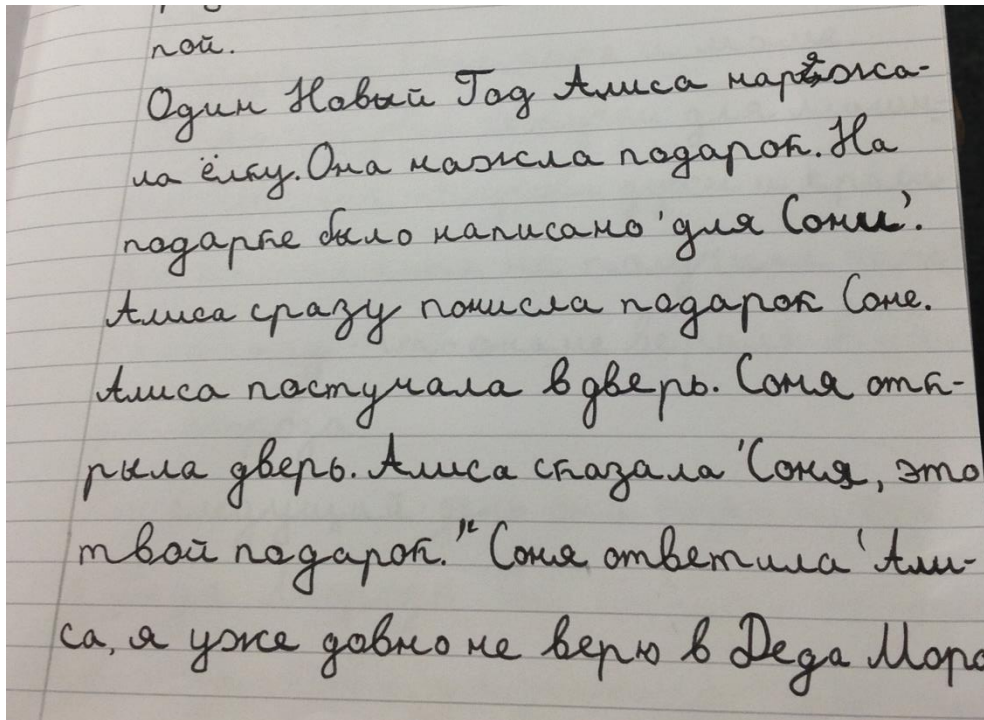 пой.
Один Новый Год Алиса наряжа-
ла ёлку. Она нажла подарок. На
подарке было написано 'для Сони'.
Алиса сразу понисла подарок Соне.
Алиса постучала в дверь. Соня отк-
рыла дверь. Алиса сказала 'Соня, это
твой подарок." "Соня ответила 'Али-
са, я уже давно не верю в Деда Моро